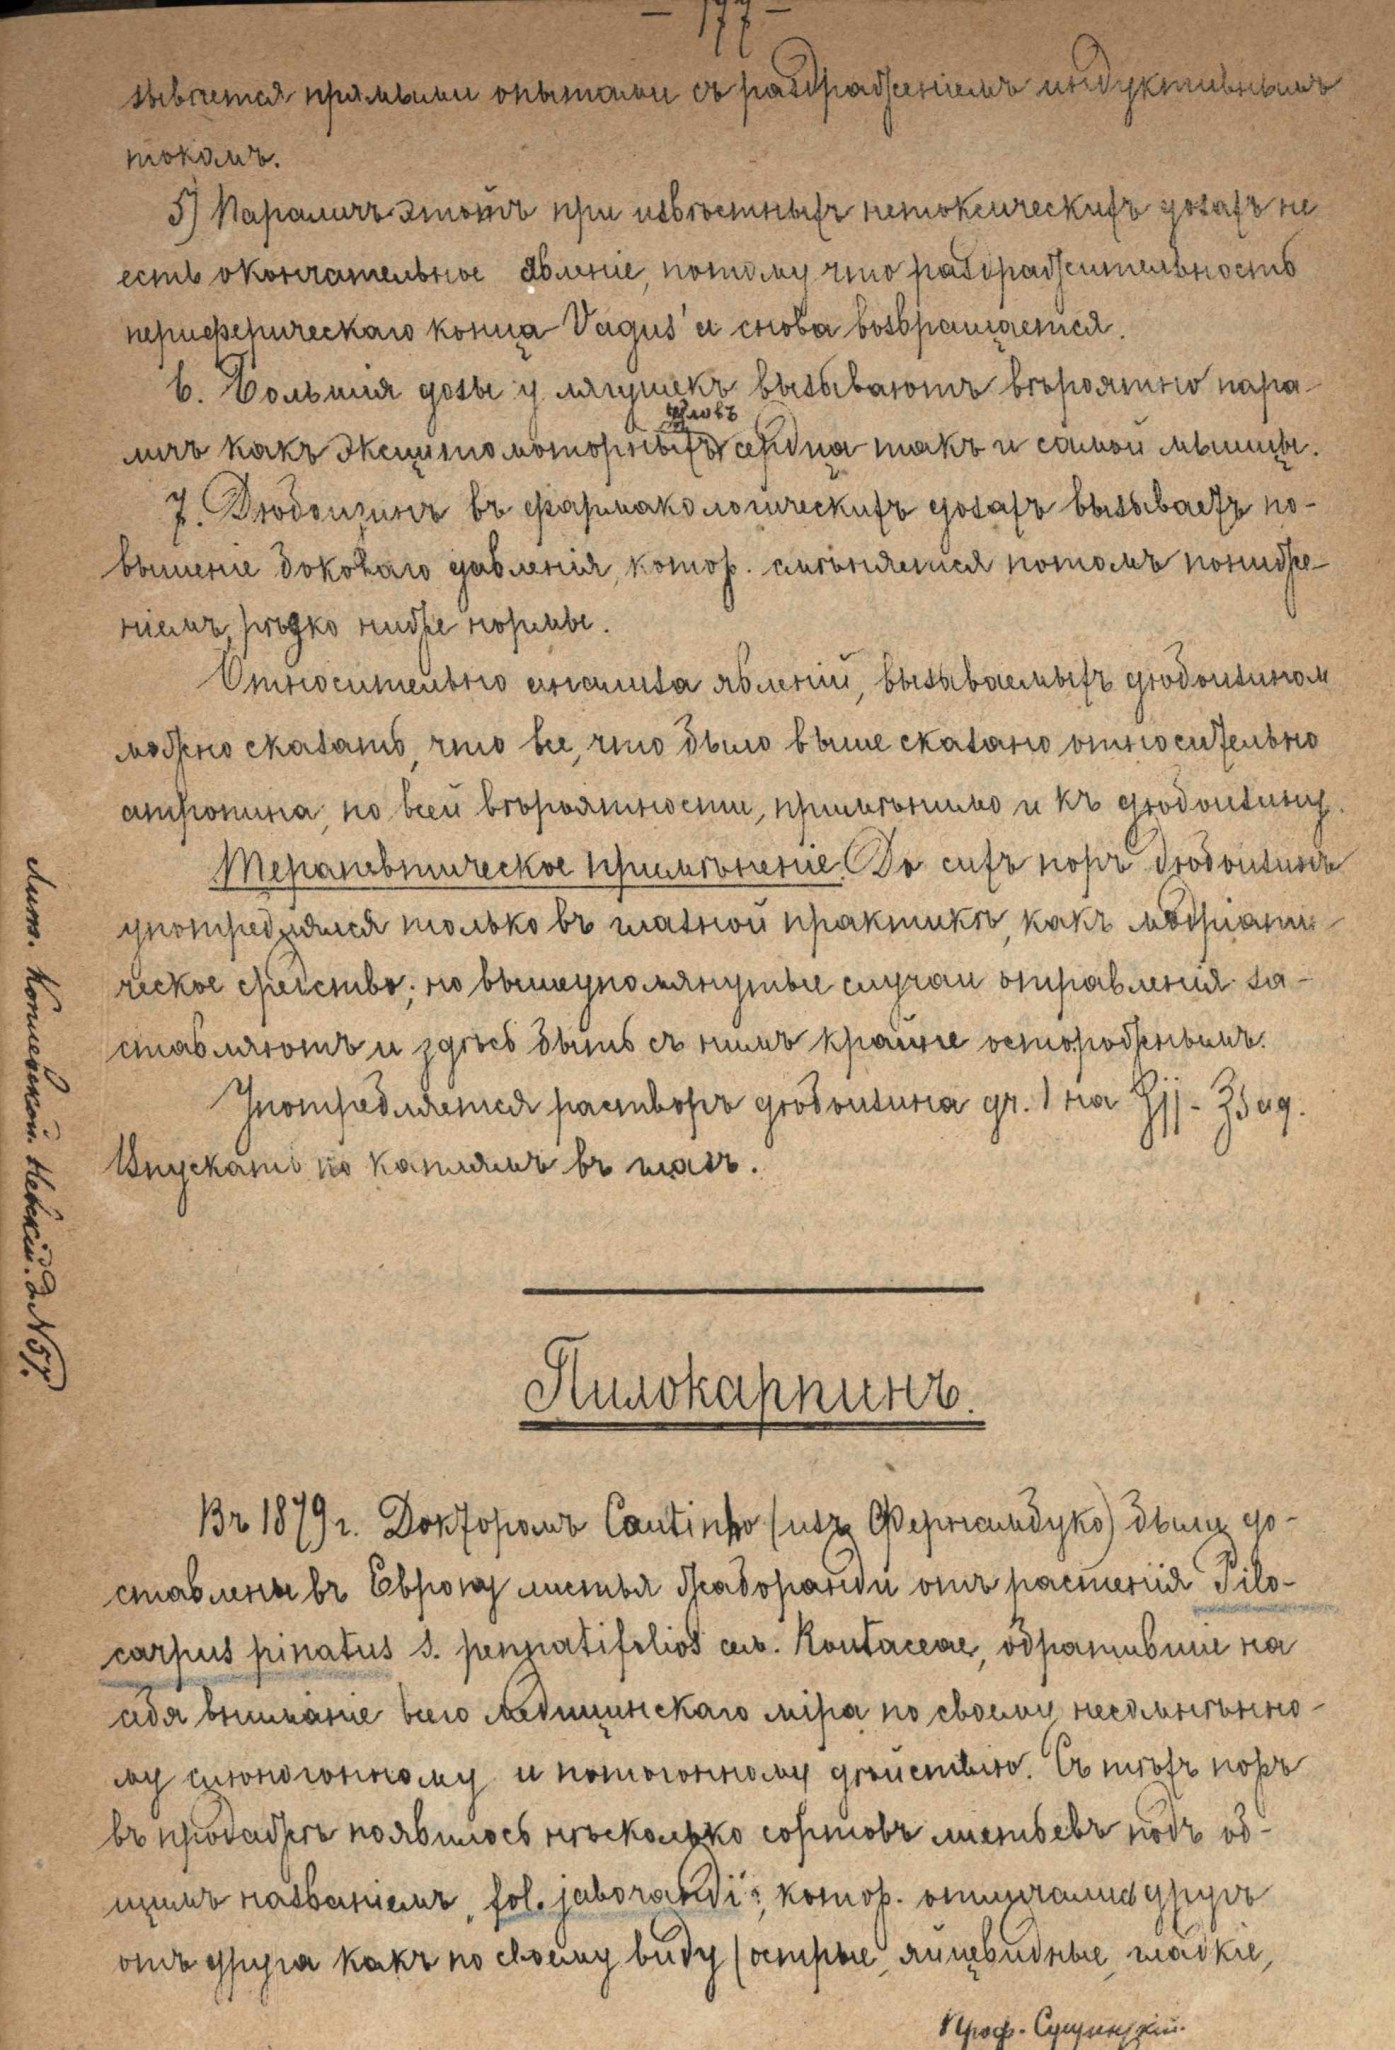 — 177 —
зывается прямыми опытами съ раздраженіемъ индуктивнымъ
токомъ.
5) Параличъ этотъ при извѣстныхъ нетоксическихъ дозахъ не
есть окончательное явленіе, потому что раздражительность
периферическаго конца Vagus'а снова возвращается.
6. Большія дозы у лягушекъ вызываютъ вѣроятно пара-
узловъ
личъ какъ эксцитомоторныхъ сердца такъ и самой мышцы.
7. Дюбоизинъ въ фармакологическихъ дозахъ вызываетъ по-
вышеніе боковаго давленія, котор. смѣняется потомъ пониже-
ніемъ, рѣзко ниже нормы.
Относительно анализа явленій, вызываемыхъ дюбоизином
можно сказать, что все, что было выше сказано относительно
атропина, по всей вѣроятности, примѣнимо и къ дюбоизину.
Терапевтическое примѣненіе. До сихъ поръ дюбоизинъ
употреблялся только въ глазной практикѣ, какъ мидріати-
ческое средство; но вышеупомянутые случаи отравленія за-
ставляютъ и здѣсь быть съ нимъ крайне осторожнымъ.
Употребляется растворъ дюбоизина gr. 1 на ℥jj - ℥j aq.
Впускать по каплямъ въ глазъ.
Пилокарпинъ.
Въ 1879 г. Докторомъ Coutinho (изъ Фернамбуко) были до-
ставлены въ Европу листья жаборанди отъ растенія Pilo-
carpus pinatus s. pennatifolios сем. Routaceae, обратившіе на
себя вниманіе всего медицинскаго міра по своему несомнѣнно-
му слюногонному и потогонному дѣйствію. Съ тѣхъ поръ
въ продажѣ появилось нѣсколько сортовъ листьевъ подъ об-
щимъ названіемъ „fol. jaborandi“, котор. отличались другъ
отъ друга какъ по своему виду (острые, яйцевидные, гладкіе,
Проф. Сущинскій.
Лит. Невскій. д. N 57.